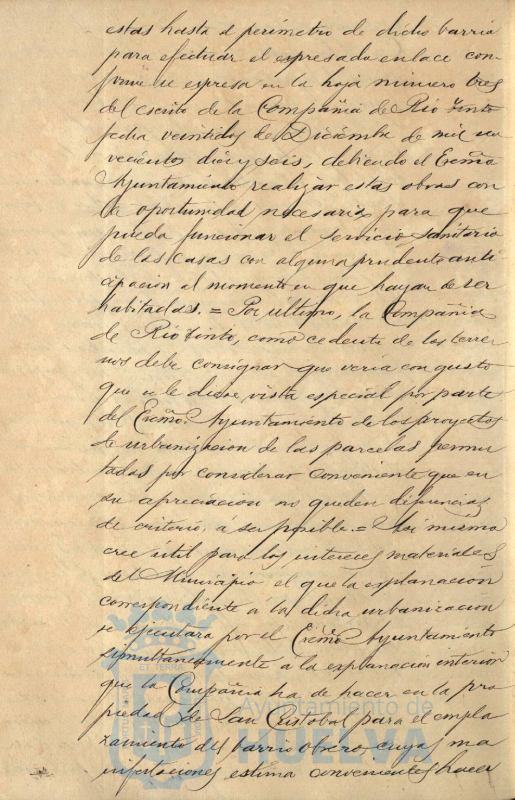 estas hasta el perímetro de dicho barrio
para efectuar el espresado enlace con-
forme se espresa en la hoja número tres
del escrito de la Compañia de Rio Tinto
fecha veintidos de Diciembre de mil no-
vecientos diez y seis, debiendo el Excmo
Ayuntamiento realizar estas obras con
la oportunidad necesaria para que
pueda funcionar el servicio sanitario
de las casas con alguna prudente anti-
cipacion al momento en que hayan de ser
habitadas. = Por último, la Compañia
de Rio Tinto, como cedente de los terre-
nos debe consignar que veria con gusto
que se le diese vista especial por parte
del Excmo. Ayuntamiento de los proyectos
de urbanizacion de las parcelas permu-
tadas por considerar conveniente que en
su apreciacion no queden diferencias
de criterio, á ser posible. = Asi mismo
cree útil para los intereses materiales
del Municipio el que la esplanación
correspondiente á la dicha urbanización
se ejecutara por el Excmo Ayuntamiento
simultaneamente a la esplanacion interior
que la Compañia ha de hacer en la pro-
piedad de San Cristobal para el empla-
zamiento del barrio obrero, cuyas ma-
nifestaciones estima convenientes hacer
Ayuntamiento de
HUELVA